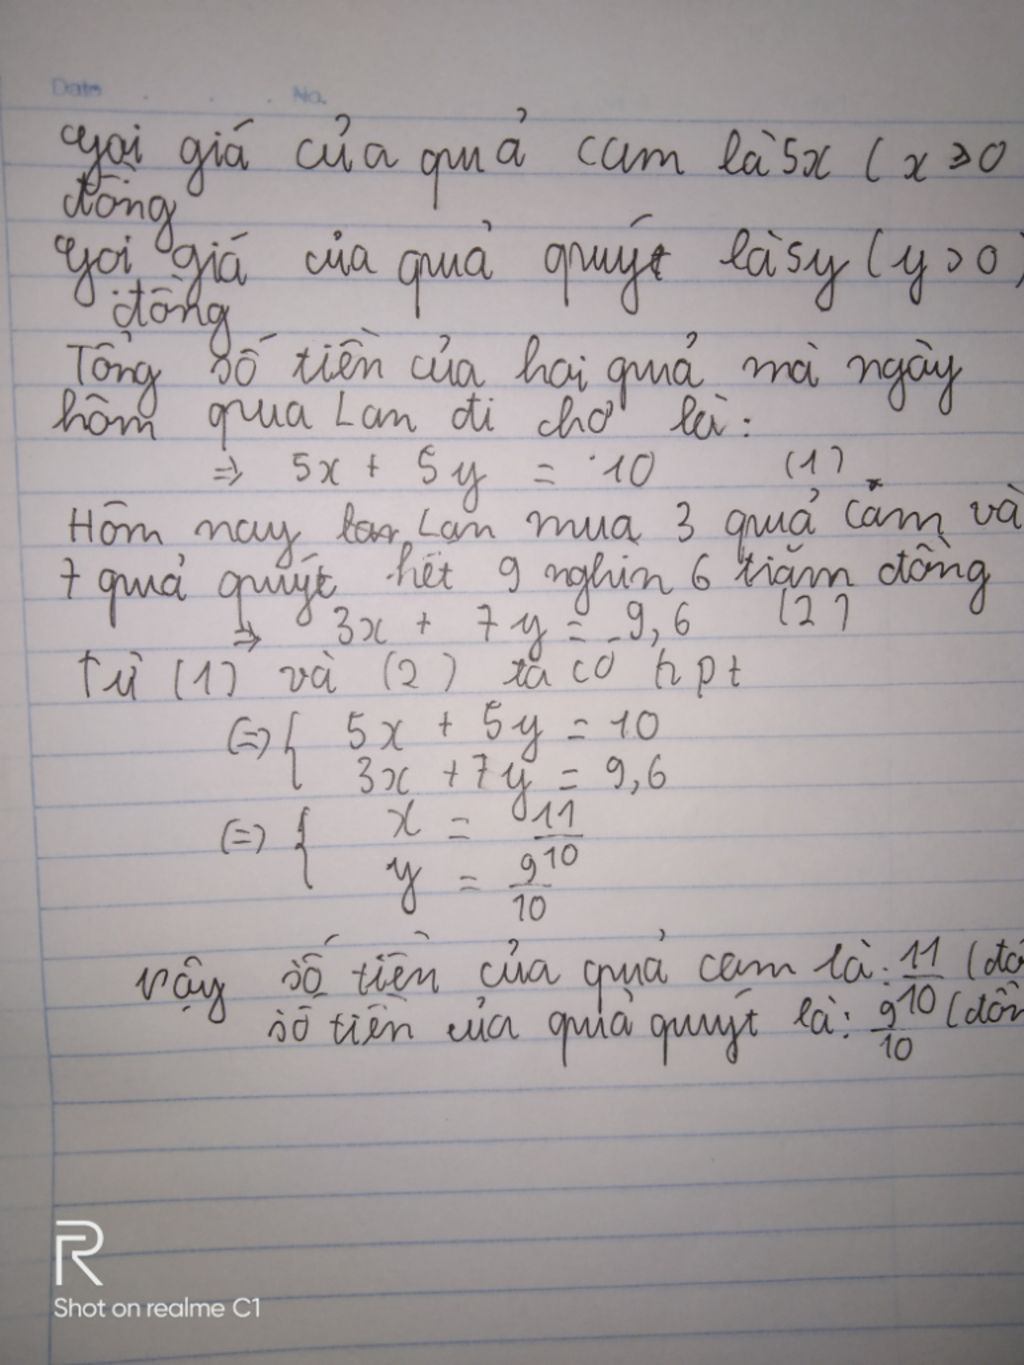 Date No.
Gọi giá của quả cam là 5x ( x ⩾ 0
đồng
Gọi giá của quả quýt là 5y ( y > 0 )
đồng
Tổng số tiền của hai quả mà ngày
hôm qua Lan đi chợ là :
=> 5x + 5y = 10 (1)
Hôm nay Lan mua 3 quả cam và
7 quả quýt hết 9 nghìn 6 trăm đồng
=> 3x + 7y = 9,6 (2)
Từ (1) và (2) ta có hpt
(=) { 5x + 5y = 10
3x + 7y = 9,6
(=) { x = 11/10
y = 9/10
Vậy số tiền của quả cam là : 11/10 (đồ
số tiền của quả quýt là : 9/10 (đồn
R
Shot on realme C1